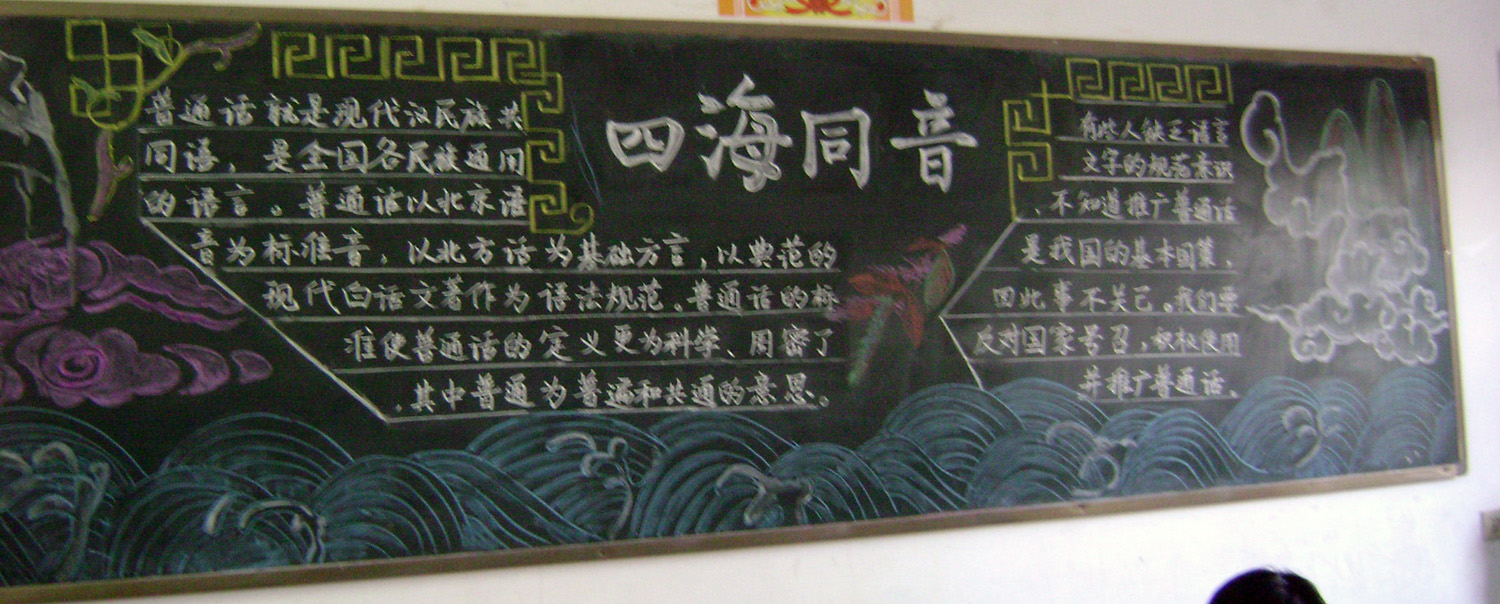 四海同音
普通话就是现代汉民族共
同语，是全国各民族通用
的语言。普通话以北京语
音为标准音，以北方话为基础方言，以典范的
现代白话文著作为语法规范。普通话的标
准使普通话的定义更为科学、周密了
，其中普通为普遍和共通的意思。
有些人缺乏语言
文字的规范意识
、不知道推广普通话
是我国的基本国策，
因此事不关己。我们要
反对国家号召，积极使用
并推广普通话。